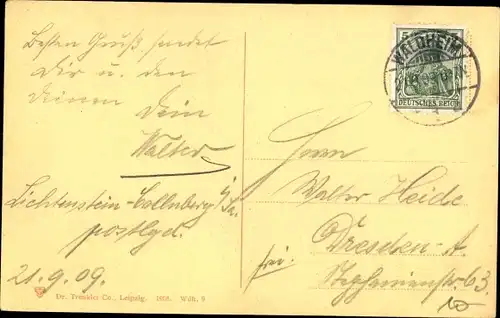 Besten Gruß sendet
Dir u. den
Deinen Dein
Walter
Lichtenstein-Callnberg i/Sa.
postlgd.
21.9.09.
Dr. Trenkler Co., Leipzig. 1908. Wdh. 8
5
WALDHEIM
DEUTSCHES REICH
Herrn
Walter Heide
Dresden-A.
frei. Stephanienstr. 63.